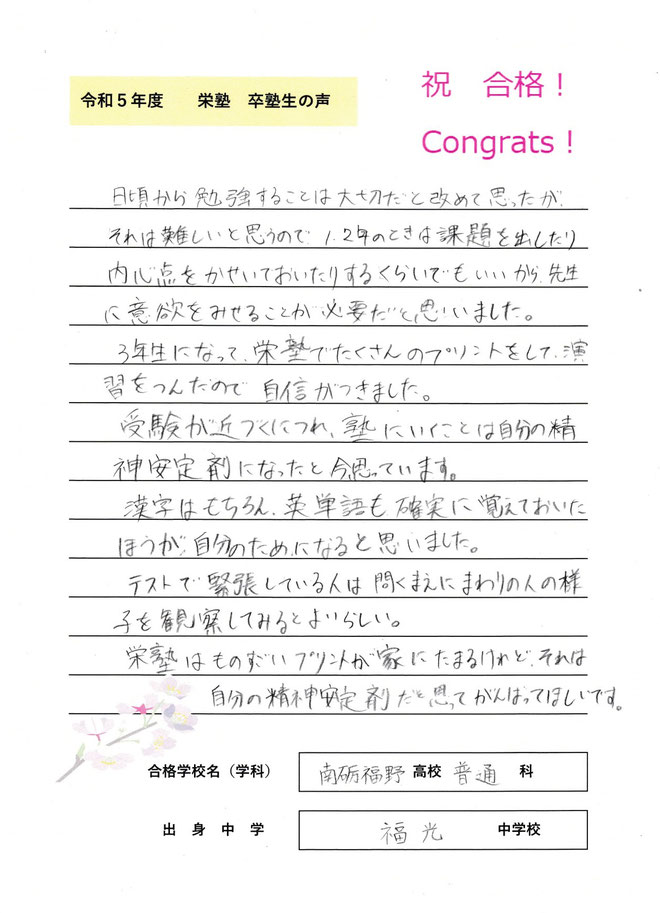 令和5年度　栄塾　卒塾生の声
祝　合格！
Congrats！
日頃から勉強することは大切だと改めて思ったが、
それは難しいと思うので1.2年のときは課題を出したり
内心点をかせいておいたりするくらいでもいいから、先生
に意欲をみせることが必要だと思いました。
3年生になって、栄塾でたくさんのプリントをして、演
習をつんだので自信がつきました。
受験が近づくにつれ、塾にいくことは自分の精
神安定剤になったと今思っています。
漢字はもちろん、英単語も確実に覚えておいた
ほうが、自分のためになると思いました。
テストで緊張している人は問くまえにまわりの人の様
子を観察してみるとよいらしい。
栄塾はものすごいプリントが家にたまるけれど、それは
自分の精神安定剤だと思ってがんばってほしいです。
合格学校名（学科）　南砺福野 高校 普通 科
出身中学　福光 中学校